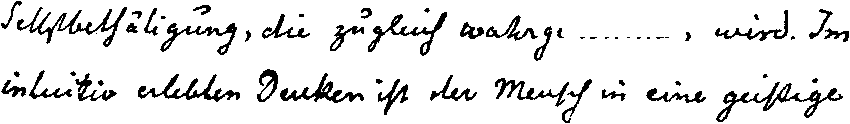 Selbstbethätigung, die zugleich wahrge ........, wird. Im
intuitiv erlebten Denken ist der Mensch in eine geistige